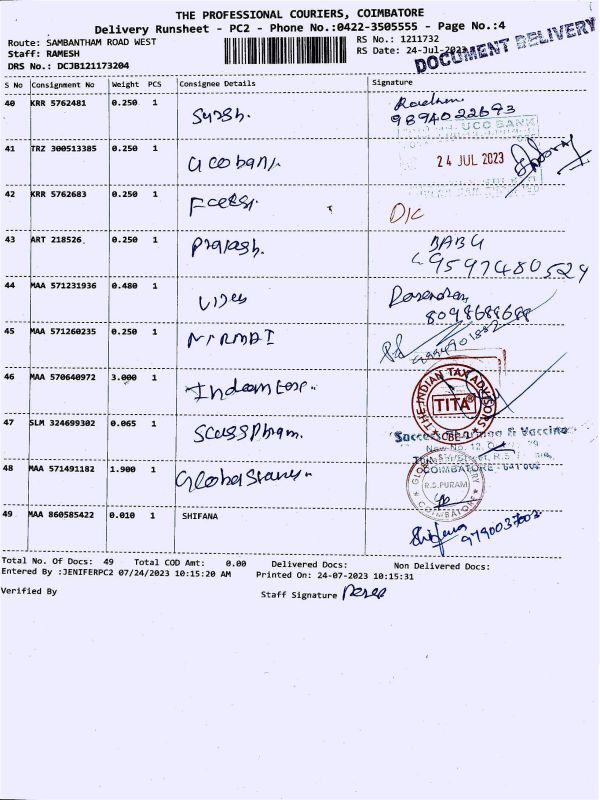 THE PROFESSIONAL COURIERS, COIMBATORE
Delivery Runsheet - PC2 - Phone No.:0422-3505555 - Page No.:4
Route: SAMBANTHAM ROAD WEST
RS No.: 1211732
Staff: RAMESH
RS Date: 24-Jul-2023
DOCUMENT DELIVERY
DRS No.: DCJB121173204
S No Consignment No Weight PCS Consignee Details Signature
40 KRR 5762481 0.250 1
9894022693
UCO BANK
41 TRZ 300513385 0.250 1 Ucobank
24 JUL 2023
42 KRR 5762683 0.250 1
D/C
43 ART 218526 0.250 1 Prakash.
BABU
9597480524
44 MAA 571231936 0.480 1
8098688688
45 MAA 571260235 0.250 1 Nirmal
9994901882
46 MAA 570640972 3.000 1
THE INDIAN TAX ADVISORS
TITA
CBE
47 SLM 324699302 0.065 1
& Vaccine
COIMBATORE - 641 002
48 MAA 571491182 1.900 1
R.S.PURAM
COIMBATORE
49 MAA 860585422 0.010 1 SHIFANA
Shifana
9790037002
Total No. Of Docs: 49 Total COD Amt: 0.00 Delivered Docs: Non Delivered Docs:
Entered By :JENIFERPC2 07/24/2023 10:15:20 AM Printed On: 24-07-2023 10:15:31
Verified By Staff Signature